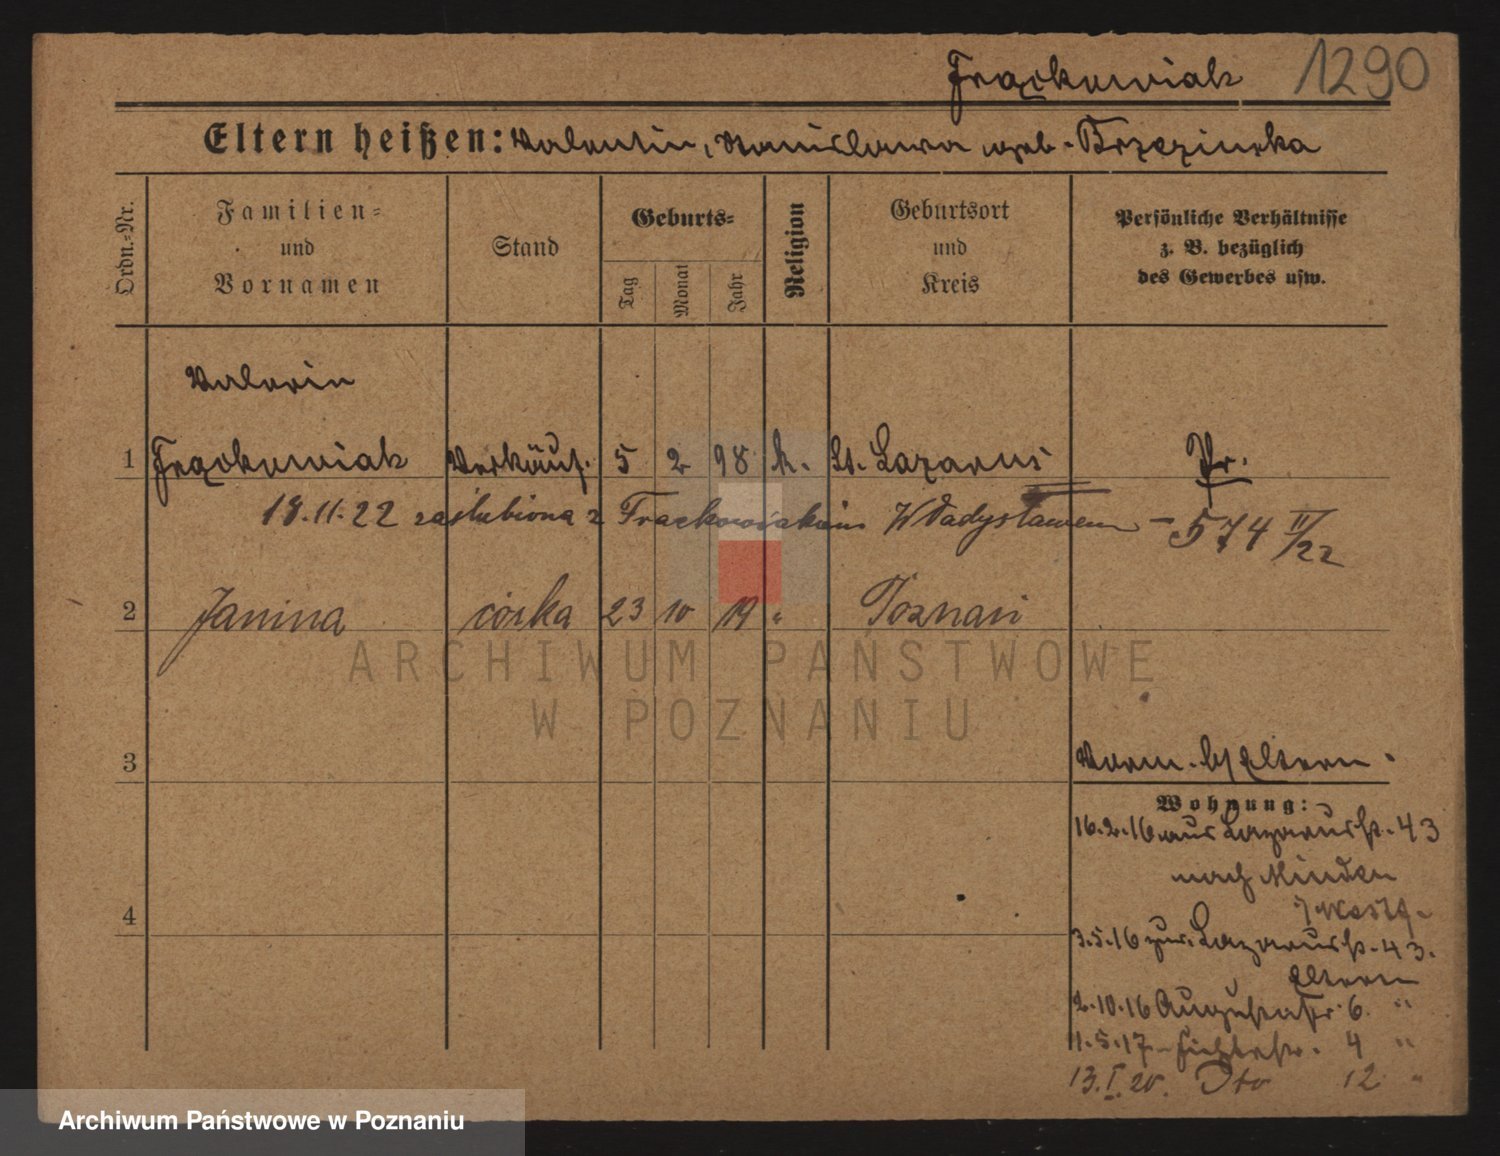 Frąckowiak 1290
Eltern heißen: Valentin, Stanislawa geb. Brzezinska
Ordn.-Nr.
Familien- und Vornamen
Stand
Geburts-
Tag
Monat
Jahr
Religion
Geburtsort und Kreis
Persönliche Verhältnisse
z. B. bezüglich
des Gewerbes usw.
Valerin
1 Frąckowiak Verkäuf. 5 2 98 k. St. Lazarus Pr.
18.11.22 zaślubiona z Frąckowiakiem Władysławem – 574 II/22
2 Janina córka 23 10 19 " Poznań
3
Vorm. b/ Eltern.
Wohnung:
16.2.16 aus Lazarusstr. 43
nach Minden
i/Westf.
4
3.5.16 zur. Lazarusstr. 43.
Eltern
2.10.16 Augustastr. 6. "
11.5.17 – Fichtestr. 4 "
13.I.20. Dto 12 "
ARCHIWUM PAŃSTWOWE
W POZNANIU
Archiwum Państwowe w Poznaniu